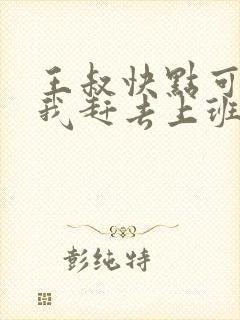 王叔快點可
我赶去上班
彭纯特